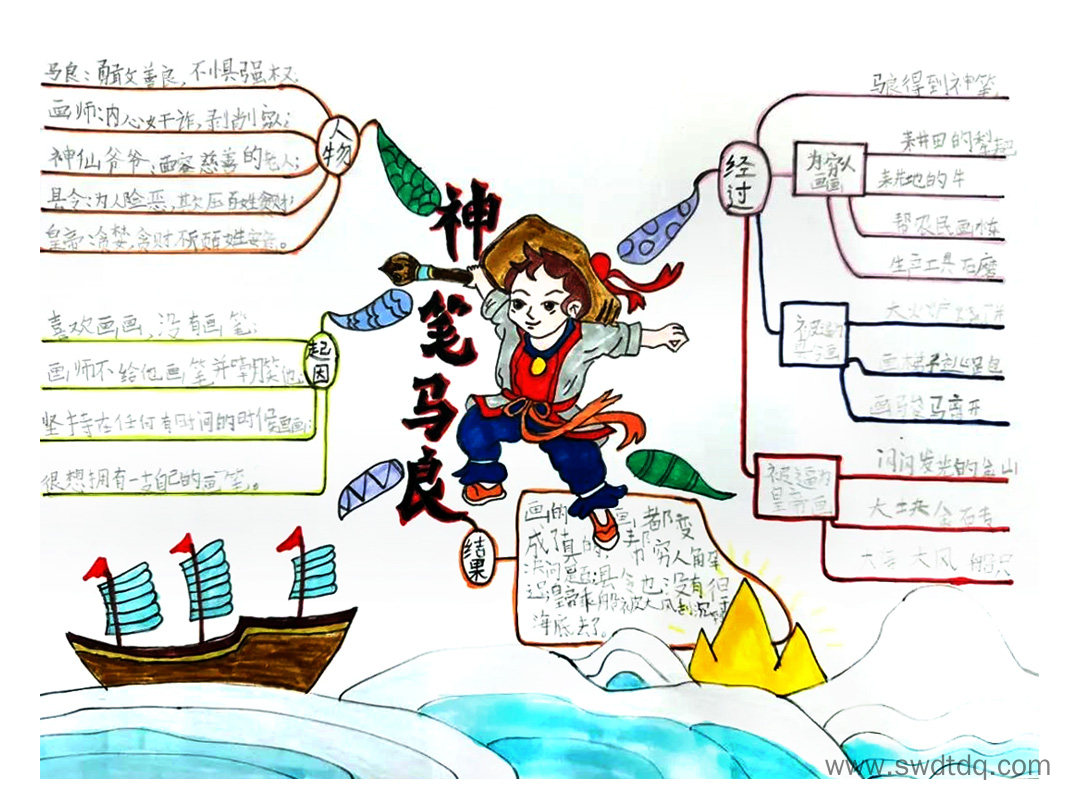 神笔马良
人物
马良：勇敢善良，不惧强权
画师：内心奸诈，剥削
神仙爷爷：面容慈善的老人；
县令：为人险恶，欺压百姓
皇帝：贪婪，贪财
起因
喜欢画画，没有画笔；
画师不给他画笔并嘲笑他；
坚持在任何有时间的时候画画；
很想拥有一支自己的画笔。
经过
马良得到神笔
为穷人画画
耕田的犁耙
耕地的牛
帮农民画水车
生产工具石磨
大火炉 烧饼
画骏马离开
被逼为皇帝画
闪闪发光的金山
大块金石砖
大海 大风 船只
结果
画的 画，都变
成了真的；帮穷人解
决问题；县令也没有
皇帝乘船被大风刮沉
海底去了。
www.swdtdq.com